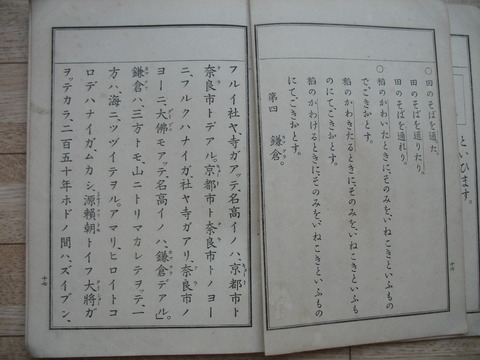 といひます。
○田のそばを通った。
田のそばを通りたり。
田のそばを通れり。
○稻のかわいたときに、そのみを、いねこきといふもの
でごきおとす。
稻のかわきたるときに、そのみを、いねこきといふも
のにてごきおとす。
稻のかわけるときに、そのみを、いねこきといふもの
にてごきおとす。
第四 鎌倉。
フルイ社ヤ、寺ガアッテ、名高イノハ、京都市ト
奈良市トデアル。京都市ト奈良市トノヨー
ニ、フルクハナイガ、社ヤ寺ガアリ、奈良市ノ
ヨーニ、大佛モアッテ、名高イノハ、鎌倉デアル」。
鎌倉ハ、三方トモ、山ニトリマカレテヲッテ、一
方ハ、海ニ、ツヅイテヲル。アマリ、ヒロイトコ
ロデハナイガ、ムカシ、源賴朝トイフ大將ガ
ヲッテカラ、二百五十年ホドノ間ハ、ズイブン、